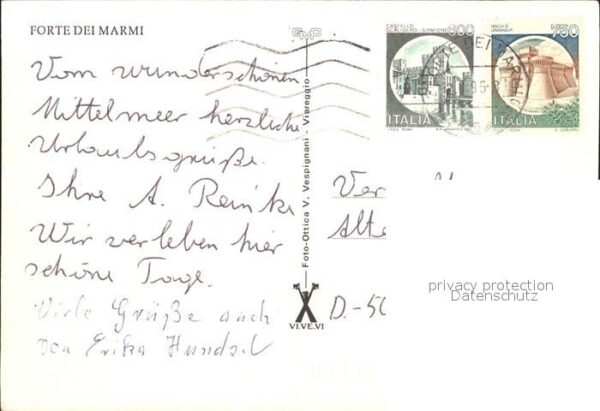 FORTE DEI MARMI
Vom wunderschönen
Mittelmeer herzliche
Urlaubsgrüße.
Ihre A. Reinke
Wir verleben hier
schöne Tage.
Viele Grüße auch
von Erika Hundsel
GMP
Foto-Ottica V. Vespignani - Viareggio
VI.VE.VI
CASTELLO
SCALIGERO-SIRMIONE
600
ITALIA
ROCCA DI
750
ITALIA
Ver
Alte
D.-50
privacy protection
Datenschutz